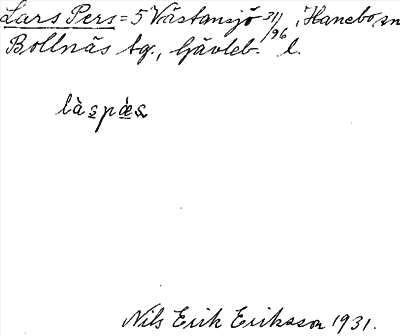 Lars Pers = 5 Västansjö 31/96, Hanebo sn
Bollnäs tg., Gävleb. l.
làspæ̀s
Nils Erik Eriksson 1931.